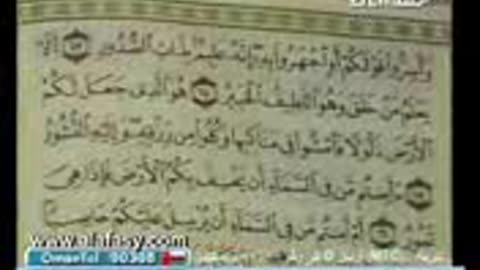 وَأَسِرُّوا۟ قَوْلَكُمْ أَوِ ٱجْهَرُوا۟ بِهِۦٓ إِنَّهُۥ عَلِيمٌۢ بِذَاتِ ٱلصُّدُورِ ١٣ أَلَا
يَعْلَمُ مَنْ خَلَقَ وَهُوَ ٱللَّطِيفُ ٱلْخَبِيرُ ١٤ هُوَ ٱلَّذِى جَعَلَ لَكُمُ
ٱلْأَرْضَ ذَلُولًا فَٱمْشُوا۟ فِى مَنَاكِبِهَا وَكُلُوا۟ مِن رِّزْقِهِۦ وَإِلَيْهِ ٱلنُّشُورُ
١٥ ءَأَمِنتُم مَّن فِى ٱلسَّمَآءِ أَن يَخْسِفَ بِكُمُ ٱلْأَرْضَ فَإِذَا هِىَ
تَمُورُ ١٦ أَمْ أَمِنتُم مَّن فِى ٱلسَّمَآءِ أَن يُرْسِلَ عَلَيْكُمْ حَاصِبًا
www.alafasy.com
Omantel 90308